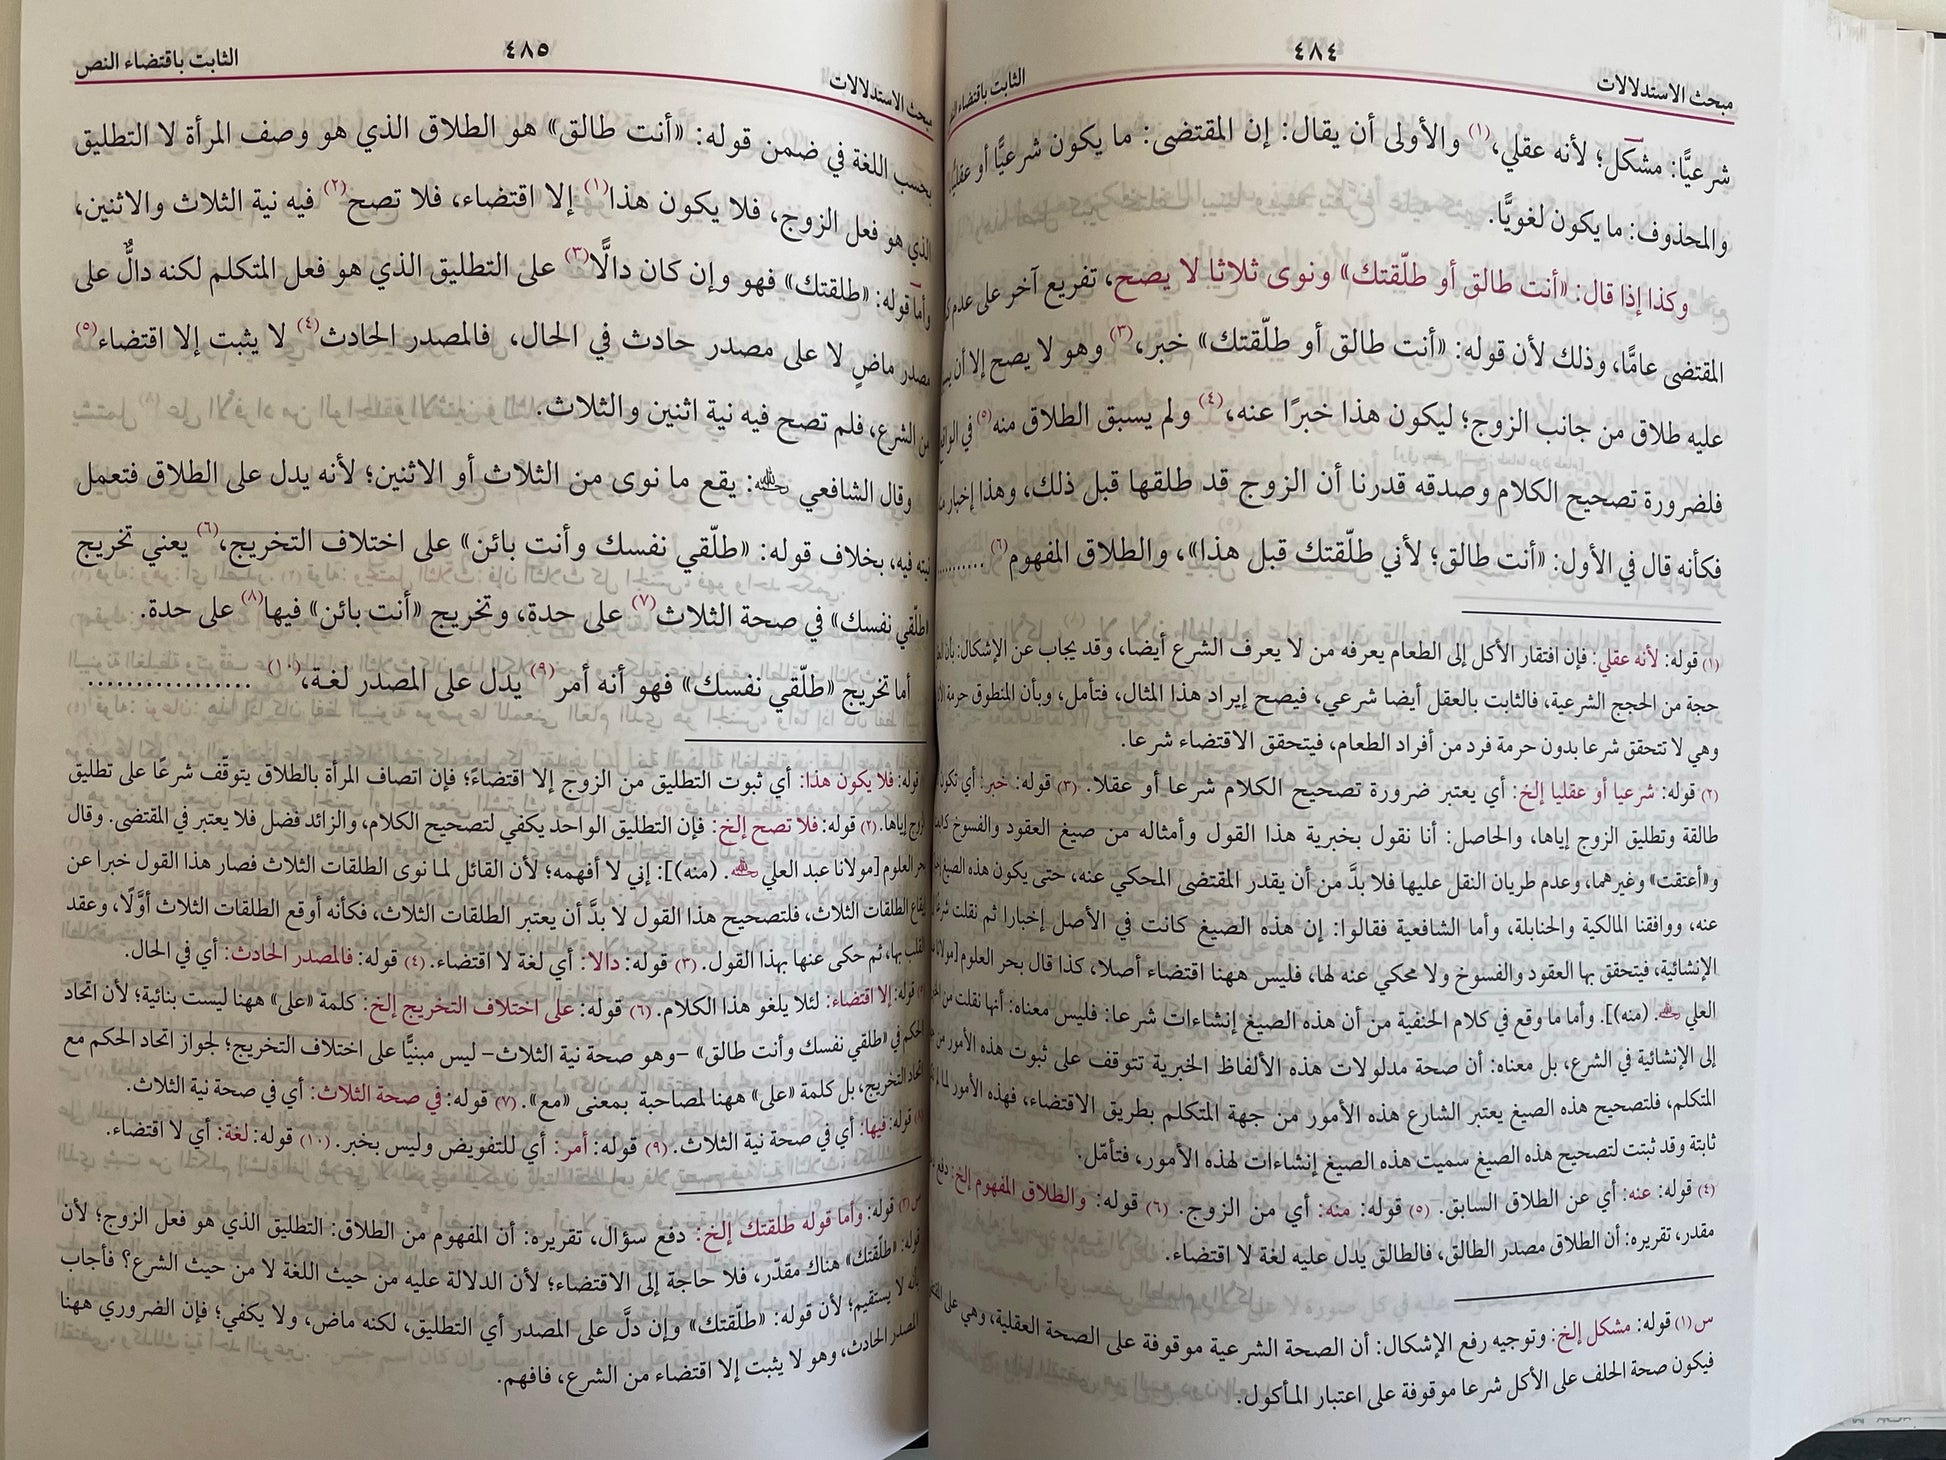 مبحث الاستدلالات ٤٨٤ الثابت باقتضاء
شرعيًّا: مشكل؛ لأنه عقلي،(١) والأولى أن يقال: إن المقتضى: ما يكون شرعيًّا أو
والمحذوف: ما يكون لغويًّا.
وكذا إذا قال: «أنت طالق أو طلّقتك» ونوى ثلاثا لا يصح، تفريع آخر على عدم
المقتضى عامًّا، وذلك لأن قوله: «أنت طالق أو طلّقتك» خبر،(٣) وهو لا يصح إلا أن
عليه طلاق من جانب الزوج؛ ليكون هذا خبرًا عنه،(٤) ولم يسبق الطلاق منه(٥) في
فلضرورة تصحيح الكلام وصدقه قدرنا أن الزوج قد طلقها قبل ذلك، وهذا إخبار
فكأنه قال في الأول: «أنت طالق؛ لأني طلّقتك قبل هذا»، والطلاق المفهوم(٦) ..........
(١) قوله: لأنه عقلي: فإن افتقار الأكل إلى الطعام يعرفه من لا يعرف الشرع أيضا، وقد يجاب عن الإشكال: بأن
حجة من الحجج الشرعية، فالثابت بالعقل أيضا شرعي، فيصح إيراد هذا المثال، فتأمل، وبأن المنطوق حرمة
وهي لا تتحقق شرعا بدون حرمة فرد من أفراد الطعام، فيتحقق الاقتضاء شرعا.
(٢) قوله: شرعيا أو عقليا إلخ: أي يعتبر ضرورة تصحيح الكلام شرعا أو عقلا. (٣) قوله: خبر: أي
طالقة وتطليق الزوج إياها، والحاصل: أنا نقول بخبرية هذا القول وأمثاله من صيغ العقود والفسوخ
و«أعتقت» وغيرهما، وعدم طريان النقل عليها فلا بدَّ من أن يقدر المقتضى المحكي عنه، حتى يكون هذه الصيغ
عنه، ووافقنا المالكية والحنابلة، وأما الشافعية فقالوا: إن هذه الصيغ كانت في الأصل إخبارا ثم نقلت
الإنشائية، فيتحقق بها العقود والفسوخ ولا محكي عنه لها، فليس ههنا اقتضاء أصلا، كذا قال بحر العلوم
العلي رحمه الله. (منه)]. وأما ما وقع في كلام الحنفية من أن هذه الصيغ إنشاءات شرعا: فليس معناه: أنها نقلت من
إلى الإنشائية في الشرع، بل معناه: أن صحة مدلولات هذه الألفاظ الخبرية تتوقف على ثبوت هذه الأمور
المتكلم، فلتصحيح هذه الصيغ يعتبر الشارع هذه الأمور من جهة المتكلم بطريق الاقتضاء، فهذه الأمور
ثابتة وقد ثبتت لتصحيح هذه الصيغ سميت هذه الصيغ إنشاءات لهذه الأمور، فتأمّل.
(٤) قوله: عنه: أي عن الطلاق السابق. (٥) قوله: منه: أي من الزوج. (٦) قوله: والطلاق المفهوم إلخ: دفع
مقدر، تقريره: أن الطلاق مصدر الطالق، فالطالق يدل عليه لغة لا اقتضاء.
س(١) قوله: مشكل إلخ: وتوجيه رفع الإشكال: أن الصحة الشرعية موقوفة على الصحة العقلية، وهي على
فيكون صحة الحلف على الأكل شرعا موقوفة على اعتبار المأكول.
مبحث الاستدلالات ٤٨٥ الثابت باقتضاء النص
بحسب اللغة في ضمن قوله: «أنت طالق» هو الطلاق الذي هو وصف المرأة لا التطليق
الذي هو فعل الزوج، فلا يكون هذا(١) إلا اقتضاء، فلا تصح(٢) فيه نية الثلاث والاثنين،
وأما قوله: «طلقتك» فهو وإن كان دالًّا(٣) على التطليق الذي هو فعل المتكلم لكنه دالٌّ على
مصدر ماضٍ لا على مصدر حادث في الحال، فالمصدر الحادث(٤) لا يثبت إلا اقتضاء(٥)
من الشرع، فلم تصح فيه نية اثنين والثلاث.
وقال الشافعي رحمه الله: يقع ما نوى من الثلاث أو الاثنين؛ لأنه يدل على الطلاق فتعمل
نيته فيه، بخلاف قوله: «طلّقي نفسك وأنت بائن» على اختلاف التخريج،(٦) يعني تخريج
«طلّقي نفسك» في صحة الثلاث(٧) على حدة، وتخريج «أنت بائن» فيها(٨) على حدة.
أما تخريج «طلّقي نفسك» فهو أنه أمر(٩) يدل على المصدر لغة،(١٠) .................
قوله: فلا يكون هذا: أي ثبوت التطليق من الزوج إلا اقتضاءً؛ فإن اتصاف المرأة بالطلاق يتوقّف شرعًا على تطليق
الزوج إياها. (٢) قوله: فلا تصح إلخ: فإن التطليق الواحد يكفي لتصحيح الكلام، والزائد فضل فلا يعتبر في المقتضى. وقال
بحر العلوم [مولانا عبد العلي رحمه الله. (منه)]: إني لا أفهمه؛ لأن القائل لما نوى الطلقات الثلاث فصار هذا القول خبرا عن
إيقاع الطلقات الثلاث، فلتصحيح هذا القول لا بدَّ أن يعتبر الطلقات الثلاث، فكأنه أوقع الطلقات الثلاث أوَّلًا، وعقد
القلب بها، ثم حكى عنها بهذا القول. (٣) قوله: دالا: أي لغة لا اقتضاء. (٤) قوله: فالمصدر الحادث: أي في الحال.
قوله: إلا اقتضاء: لئلا يلغو هذا الكلام. (٦) قوله: على اختلاف التخريج إلخ: كلمة «على» ههنا ليست بنائية؛ لأن اتحاد
الحكم في «طلقي نفسك وأنت طالق» -وهو صحة نية الثلاث- ليس مبنيًّا على اختلاف التخريج؛ لجواز اتحاد الحكم مع
اتحاد التخريج، بل كلمة «على» ههنا لمصاحبة بمعنى «مع». (٧) قوله: في صحة الثلاث: أي في صحة نية الثلاث.
قوله: فيها: أي في صحة نية الثلاث. (٩) قوله: أمر: أي للتفويض وليس بخبر. (١٠) قوله: لغة: أي لا اقتضاء.
س(٢) قوله: وأما قوله طلقتك إلخ: دفع سؤال، تقريره: أن المفهوم من الطلاق: التطليق الذي هو فعل الزوج؛ لأن
قوله: «طلّقتك» هناك مقدّر، فلا حاجة إلى الاقتضاء؛ لأن الدلالة عليه من حيث اللغة لا من حيث الشرع؟ فأجاب
بأنه لا يستقيم؛ لأن قوله: «طلّقتك» وإن دلَّ على المصدر أي التطليق، لكنه ماض، ولا يكفي؛ فإن الضروري ههنا
المصدر الحادث، وهو لا يثبت إلا اقتضاء من الشرع، فافهم.